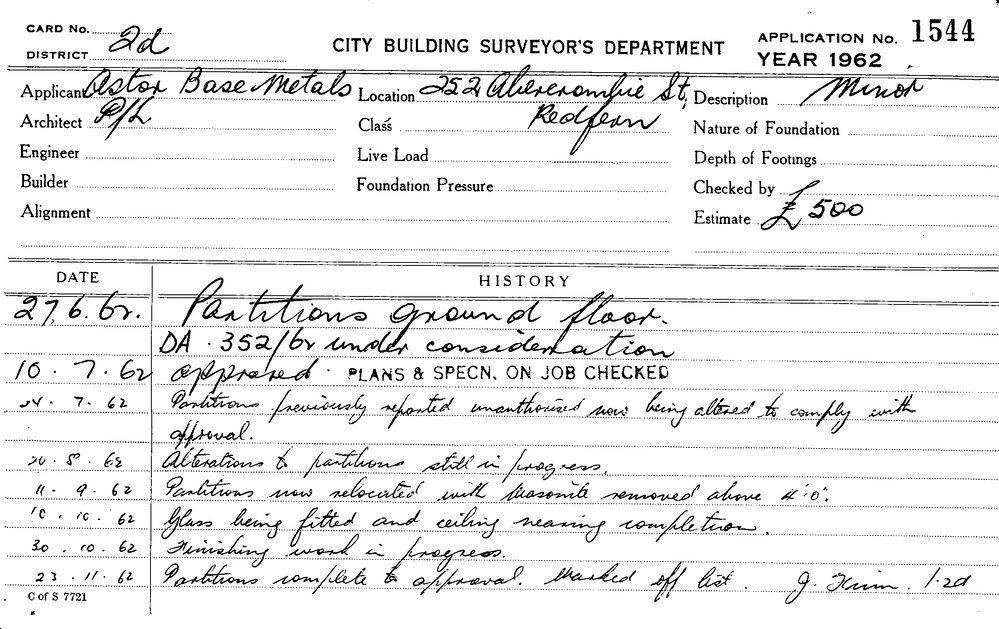 CARD No. 2d
DISTRICT
CITY BUILDING SURVEYOR'S DEPARTMENT
APPLICATION No. 1544
YEAR 1962
Applicant Astor Base Metals
Location 252 Abercrombie St,
Description Minor
Architect P/L
Class Redfern
Nature of Foundation
Engineer
Live Load
Depth of Footings
Builder
Foundation Pressure
Checked by
Alignment
Estimate £500
DATE HISTORY
27.6.62. Partitions ground floor.
DA. 352/62 under consideration
10.7.62 approved. PLANS & SPECN. ON JOB CHECKED
24.7.62 Partitions previously reported unauthorised now being altered to comply with
approval.
20.8.62 Alterations to partitions still in progress.
11.9.62 Partitions now relocated with masonite removed above 4'.0".
10.10.62 Glass being fitted and ceiling nearing completion.
30.10.62 Finishing work in progress.
23.11.62 Partitions complete to approval. Marked off list. J. 1.2d
C of S 7721